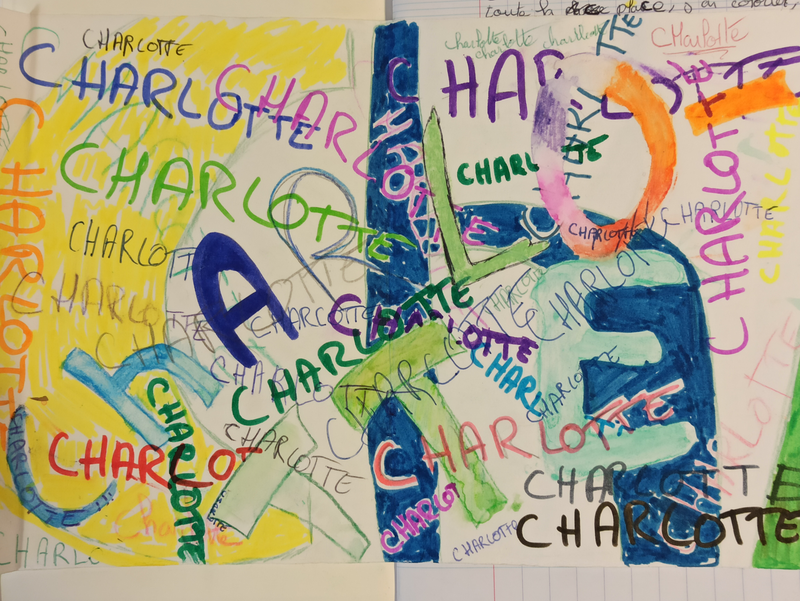 toute la place,
CHARLOTTE
charlotte
charlotte
charlotte
Charlotte
CHARLOTTE
CHARLOTTE
CHARLOTTE
CHARLOTTE
CHARLOTTE
CHARLOTTE
CHARLOTTE
CHARL
CHARLOTTE
CHARLOTTE
CHARLOTTE
CHARLOTTE
CHARLOTTE
CHARLOTTE
CHARLOTTE
CHARLOTTE
CHARLOTTE
CHARLOTTE
CHARLOTTE
CHARLOTTE
CHARLOTTE
CHARLOTTE
CHARLOT
CHARLOTTE
CHARLOTTE
CHARLOTTE
CHARLOTTE
CHARLOTTE
CHARLOT
CHARLOTTE
Charlotte
CHARLOTTE
CHARLOTTE